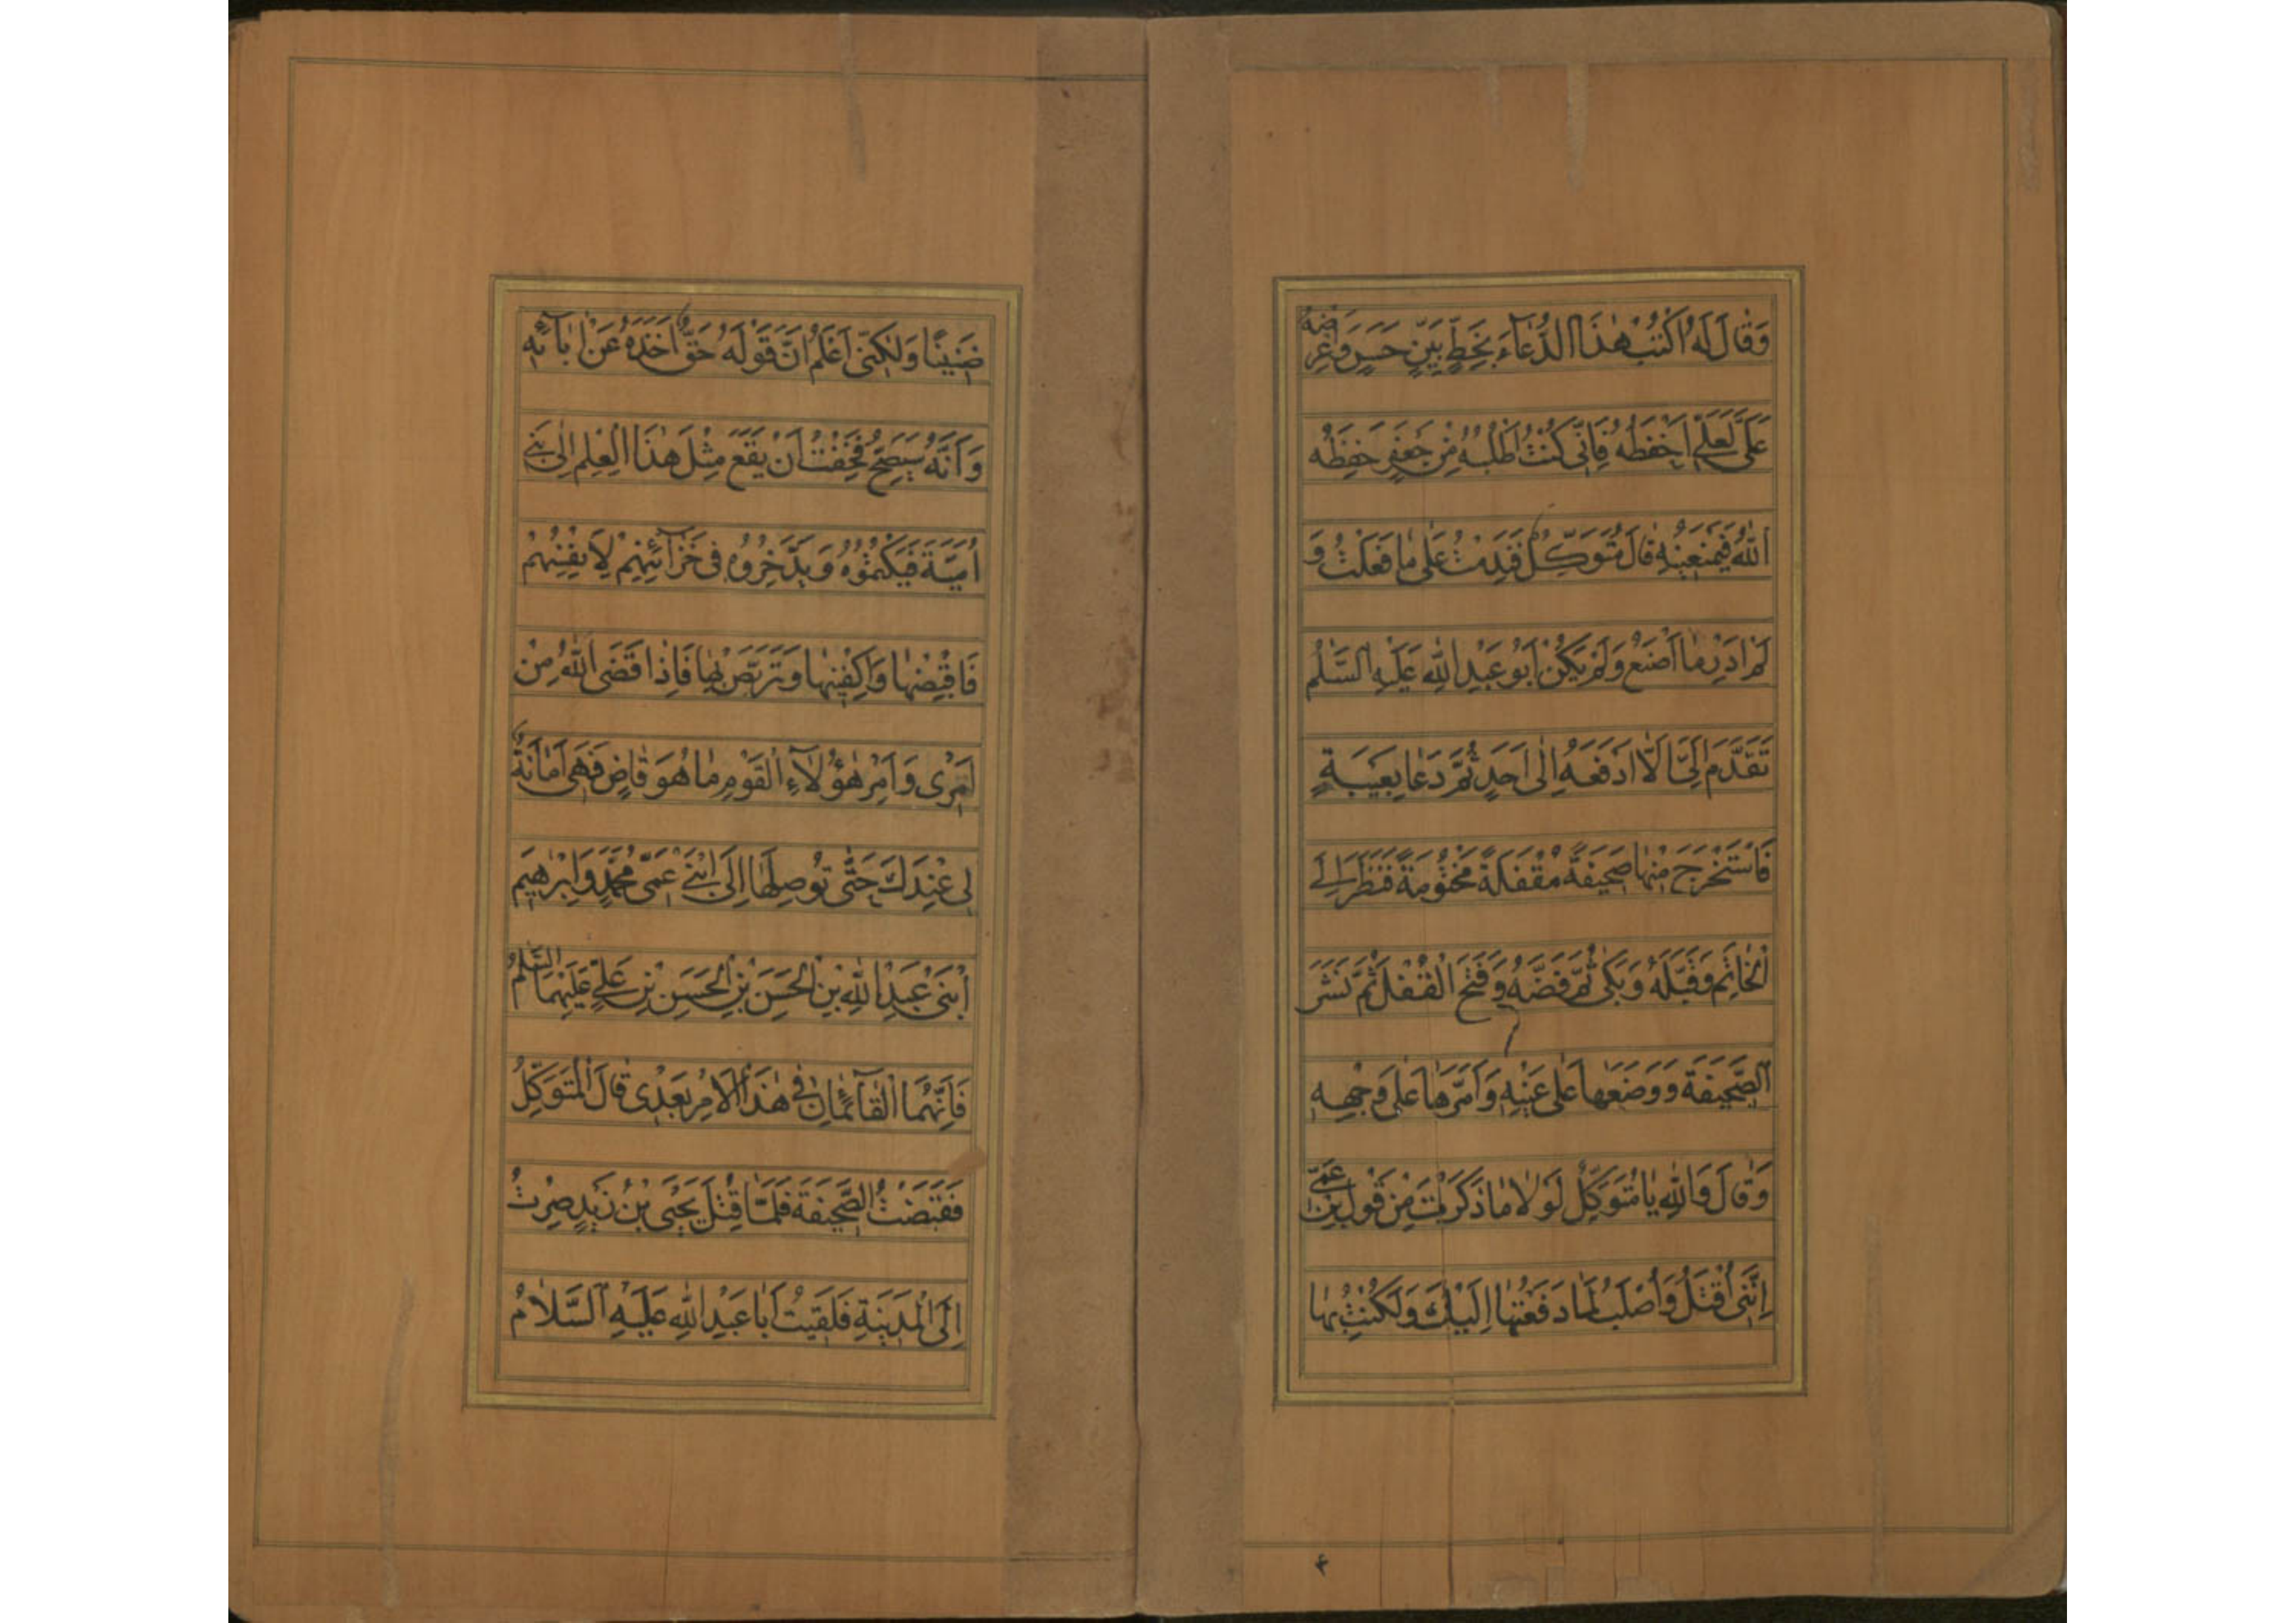 وَقَالَ لَهُ اكْتُبْ هٰذَا الدُّعَآءَ بِخَطٍّ بَيِّنٍ حَسَنٍ وَاعْرِضْهُ
عَلَىَّ لَعَلّٖى اَحْفَظُهُ فَاِنّٖى كُنْتُ اَطْلُبُهُ مِنْ جَعْفَرٍ حَفِظَهُ
اللّٰهُ فَيَمْنَعُنِيهِ قَالَ مُتَوَكِّلٌ فَنَدِمْتُ عَلٰى مٰا فَعَلْتُ وَ
لَمْ اَدْرِ مٰا اَصْنَعُ وَلَمْ يَكُنْ اَبُو عَبْدِ اللّٰهِ عَلَيْهِ السَّلٰمُ
تَقَدَّمَ اِلَىَّ اَلَّا اَدْفَعَهُ اِلٰى اَحَدٍ ثُمَّ دَعَا بِعَيْبَةٍ
فَاسْتَخْرَجَ مِنْهٰا صَحِيفَةً مُقْفَلَةً مَخْتُومَةً فَنَظَرَ اِلَى
الْخٰاتَمِ وَقَبَّلَهُ وَبَكٰى ثُمَّ فَضَّهُ وَفَتَحَ الْقُفْلَ ثُمَّ نَشَرَ
الصَّحِيفَةَ وَوَضَعَهٰا عَلٰى عَيْنِهِ وَاَمَرَّهٰا عَلٰى وَجْهِهِ
وَقٰالَ وَاللّٰهِ يٰا مُتَوَكِّلُ لَوْلٰا مٰا ذَكَرْتَ مِنْ قَوْلِ بْنِ عَمّٖى
اِنَّنٖى اُقْتَلُ وَاُصْلَبُ لَمٰا دَفَعْتُهٰا اِلَيْكَ وَلَكُنْتُ بِهٰا
۴
ضَنِينًا وَلٰكِنّٖى اَعْلَمُ اَنَّ قَوْلَهُ حَقٌّ اَخَذَهُ عَنْ اٰبٰآئِهِ
وَاَنَّهُ سَيَصِحُّ فَخِفْتُ اَنْ يَقَعَ مِثْلُ هٰذَا الْعِلْمِ اِلٰى بَنٖى
اُمَيَّةَ فَيَكْتُمُوُهُ وَيَدَّخِرُوُهُ فٖى خَزٰآئِنِهِمْ لِاَنْفُسِهِمْ
فَاقْبِضْهٰا وَاكْفِنِيهٰا وَتَرَبَّصْ بِهٰا فَاِذٰا قَضَى اللّٰهُ مِنْ
اَمْرٖى وَاَمْرِ هٰؤُلٰآءِ الْقَوْمِ مٰا هُوَ قٰاضٍ فَهِىَ اَمٰانَةٌ
لٖى عِنْدَكَ حَتّٰى تُوصِلَهٰا اِلَى ابْنَىْ عَمّٖى مُحَمَّدٍ وَاِبْرٰهِيمَ
ابْنَىْ عَبْدِ اللّٰهِ بْنِ الْحَسَنِ بْنِ الْحَسَنِ بْنِ عَلِىٍّ عَلَيْهِمَا السَّلٰمُ
فَاِنَّهُمَا الْقٰآئِمٰانِ فٖى هٰذَا الْاَمْرِ بَعْدٖى قٰالَ الْمُتَوَكِّلُ
فَقَبَضْتُ الصَّحِيفَةَ فَلَمَّا قُتِلَ يَحْيَى بْنُ زَيْدٍ صِرْتُ
اِلَى الْمَدِينَةِ فَلَقِيتُ اَبٰا عَبْدِ اللّٰهِ عَلَيْهِ السَّلٰامُ